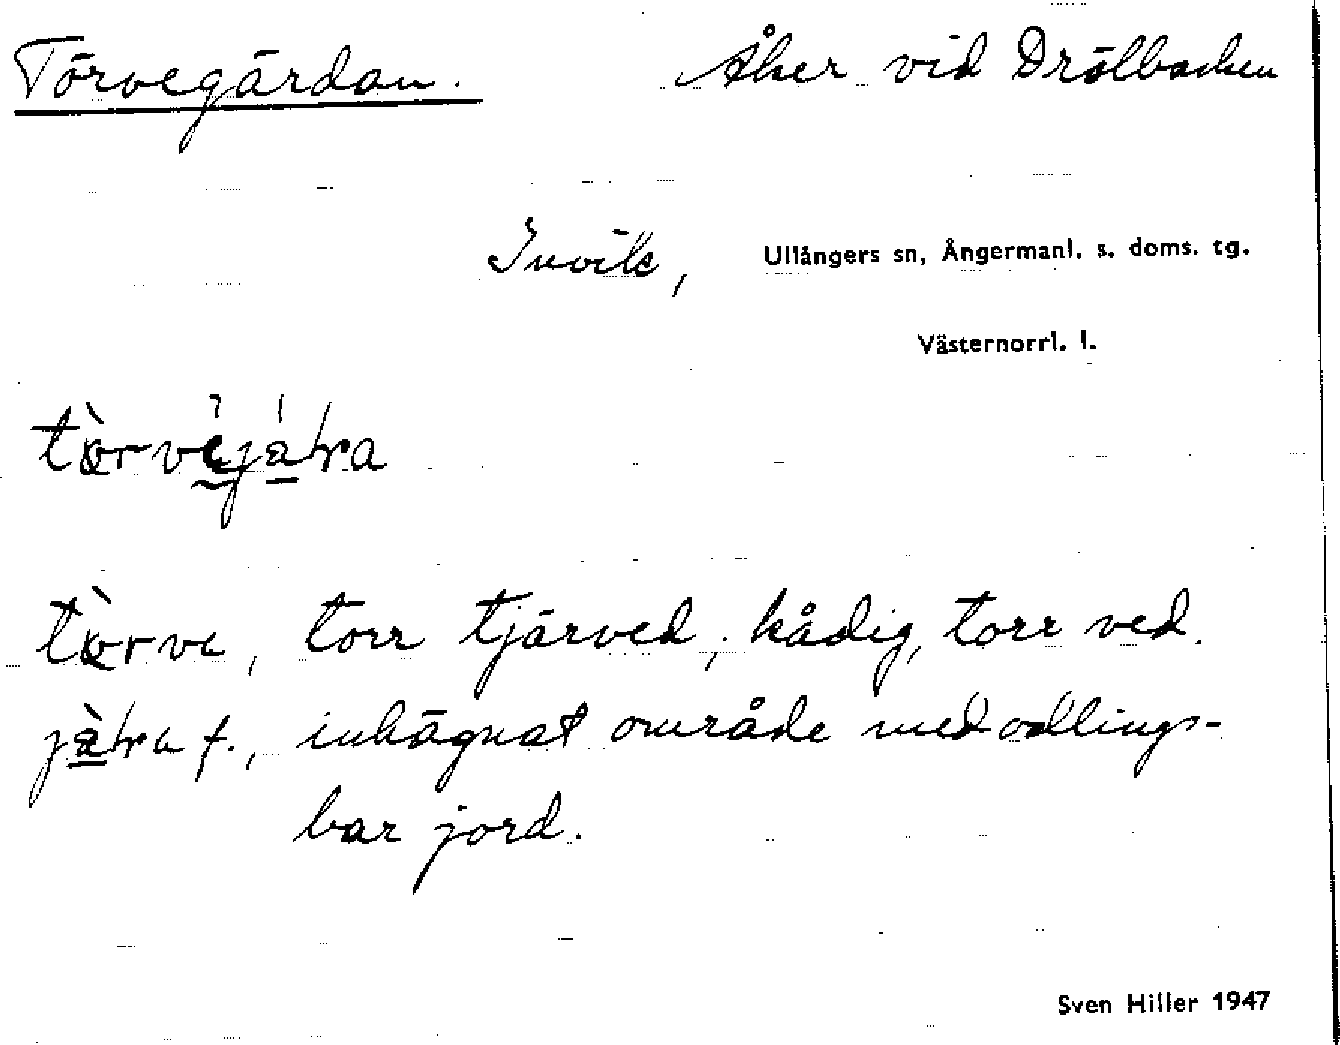 Törvegärdan. Åker vid Drölbacken
Invik, Ullångers sn, Ångermanl. s. doms. tg.
Västernorrl. l.
torr tjärved, kådig, torr ved.
f., inhägnat område med odlings-
bar jord.
Sven Hiller 1947